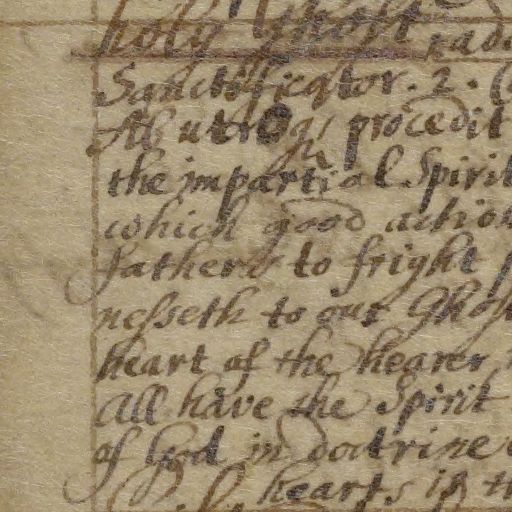 holy Ghost
Sanctificator. 2.
Ab utroq; procedit
the impartial Spirit
which good action
fathers to fright
nesseth to our Ghos
heart of the hearer
All have the Spirit
of God in doctrine
hearts is th